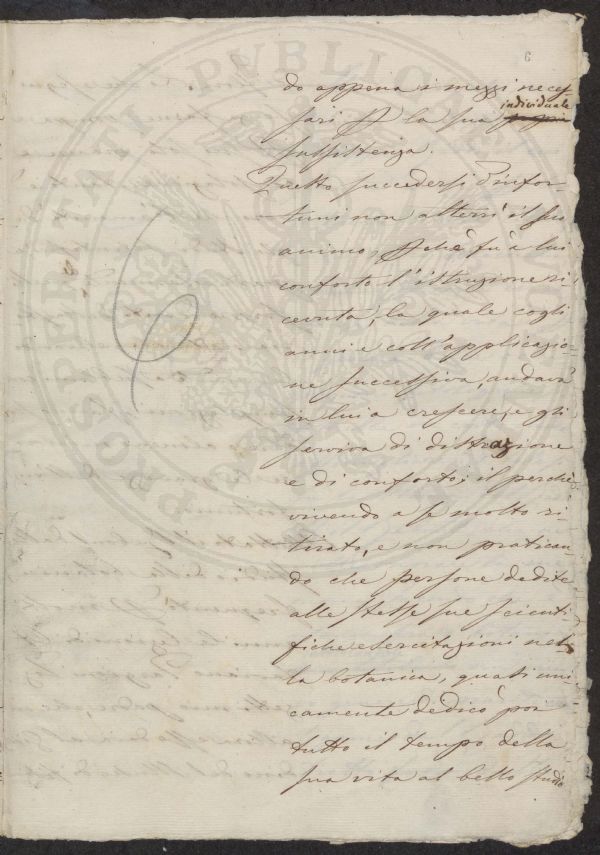 6
do appena i mezzi neces
individuale
sari p la sua propria
sussistenza.
Questo succedersi d'infor-
tuni non atterrì il suo
animo, pchè fù a lui
conforto l'istruzione ri
cevuta, la quale cogli
anni e coll'applicazio-
ne successiva, andava
in lui a crescere, e gli
serviva di distrazione
e di conforto; il perchè
vivendo a se molto ri-
tirato, e non pratican-
do che persone dedite
alle stesse sue scienti-
fiche esercitazioni nel-
la botanica, quasi uni
camente dedicò poi
tutto il tempo della
sua vita al bello studio
PROSPERITATI PUBLICAE